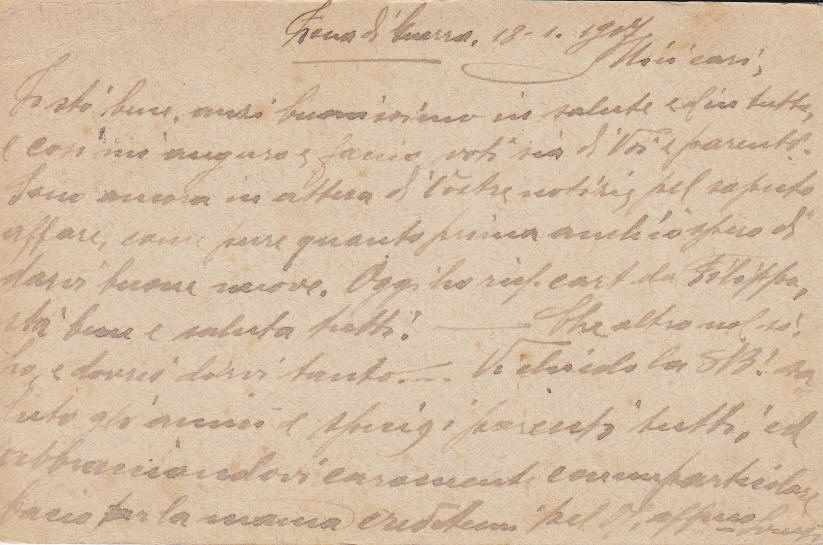 Zona di Guerra, 18-1. 1917
Miei cari,
Io stò bene, anzi buonissimo in salute ed in tutto,
e così mi auguro e faccio voti sia di Voi e parenti.
Sono ancora in attesa di Vostre notizie pel saputo
affare, come pure quanto prima anch'io spero di
darvi buone nuove. Oggi ho ric. cart. da Filippa,
stà bene e saluta tutti. — Che altro nel sò,
ho, e dovrei dirvi tanto. — Vi chiedo la SB. sa-
luto gli amici e i parenti tutti, ed
abbracciandovi caramente con un particolare
bacio per la mama credetemi pel V. affmo